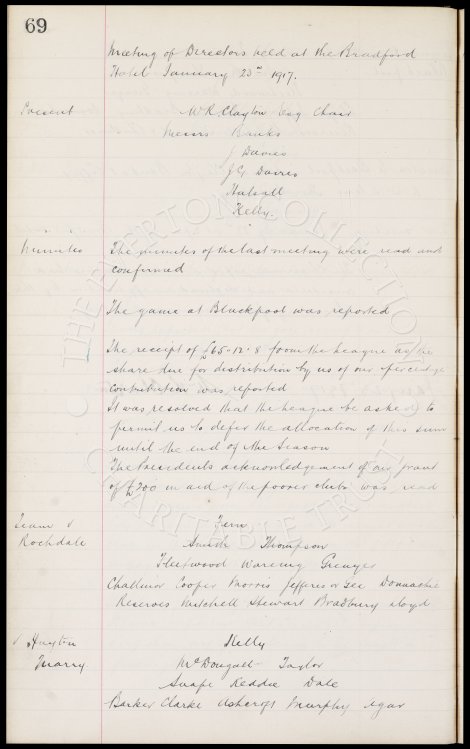 69
Meeting of Directors held at the Bradford
Hotel January 23rd 1917.
Present W R Clayton Esq Chair
Messrs Banks
J Davies
J G Davies
Halsall
Kelly.
Minutes The minutes of the last meeting were read and
confirmed
The game at Blackpool was reported
The receipt of £65-12-8 from the League as the
share due for distribution by us of our percentage
contribution was reported
It was resolved that the League be asked to
permit us to defer the allocation of this sum
until the end of the Season
The Presidents acknowledgement of our grant
of £200 in aid of the poorer clubs was read
Team v Fern
Rochdale Smith Thompson
Fleetwood Wareing Grenyer
Challinor Cooper Morris Jefferis or Lee Donnachie
Reserves Mitchell Stewart Bradbury Lloyd
v Kelly
McDougall Taylor
Snape Reddie Dale
Barker Clarke Ashcroft Murphy Agar
THE EVERTON COLLECTION
CHARITABLE TRUST